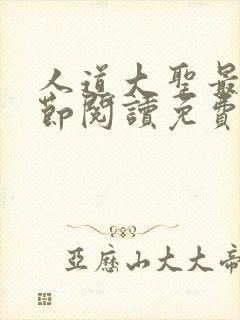 人道大聖最
節閱讀免費
亞歷山大大帝